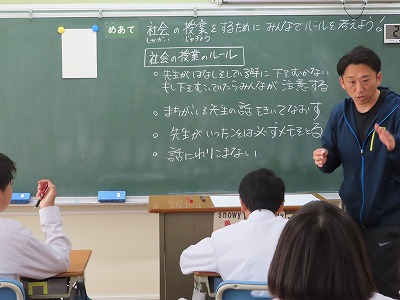 めあて 社会の授業をするためにみんなでルールを考えよう!
しゃかい じゅぎょう
社会の授業のルール
○先生がはなしをしている時に下をむかない
もし下をむいていたらみんなが注意する
○まちがいを先生の話をきいてなおす
○先生がいったことは必ずメモをとる
○話にわりこまない
snowy
2